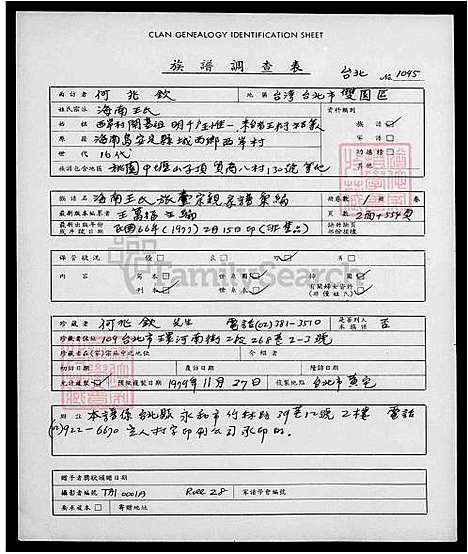 CLAN GENEALOGY IDENTIFICATION SHEET
族譜調查表
台北 No 1045
面訪者 何兆欽 地區 台灣台北市雙園區
姓氏宗派 海南王氏 資料類別
始祖 西岸村開基祖 族譜
原籍 海南島安定縣城西鄉西岸村 宗譜
世代 16代
族譜包含地區
譜名 海南王氏旅臺宗親家譜彙編 總卷數 1 卷
最新版本編纂者 王萬福主編 頁數 2面+554頁
最新出版年份或手抄日 民國66年(1977)2月15日印(非賣品) 缺卷缺頁情形
保管狀況 優 良 可 劣
內容 寫本 世系圖 有關婦女資料(非僅姓氏)
刊本 世系表
FamilySearch
珍藏者 何兆欽 先生 電話(02)381-3510 是否別人本族譜 否
珍藏者住址 109台北市環河南街2段268巷2-3號
珍藏者在(家)宗族中之地位 介紹者
初訪日期 續訪日期
允許複製 預擬複製日期 1979年11月27日 複製地點 台北市黃宅
附註 本譜係台北縣永和市竹林路39巷12號2樓 電話
(02)922-6670 立人打字印刷公司承印的。
贈予者獎狀頒贈日期
攝影者編號 TA1 0001A Roll 28 家譜學會編號
要求複本 寄贈地址